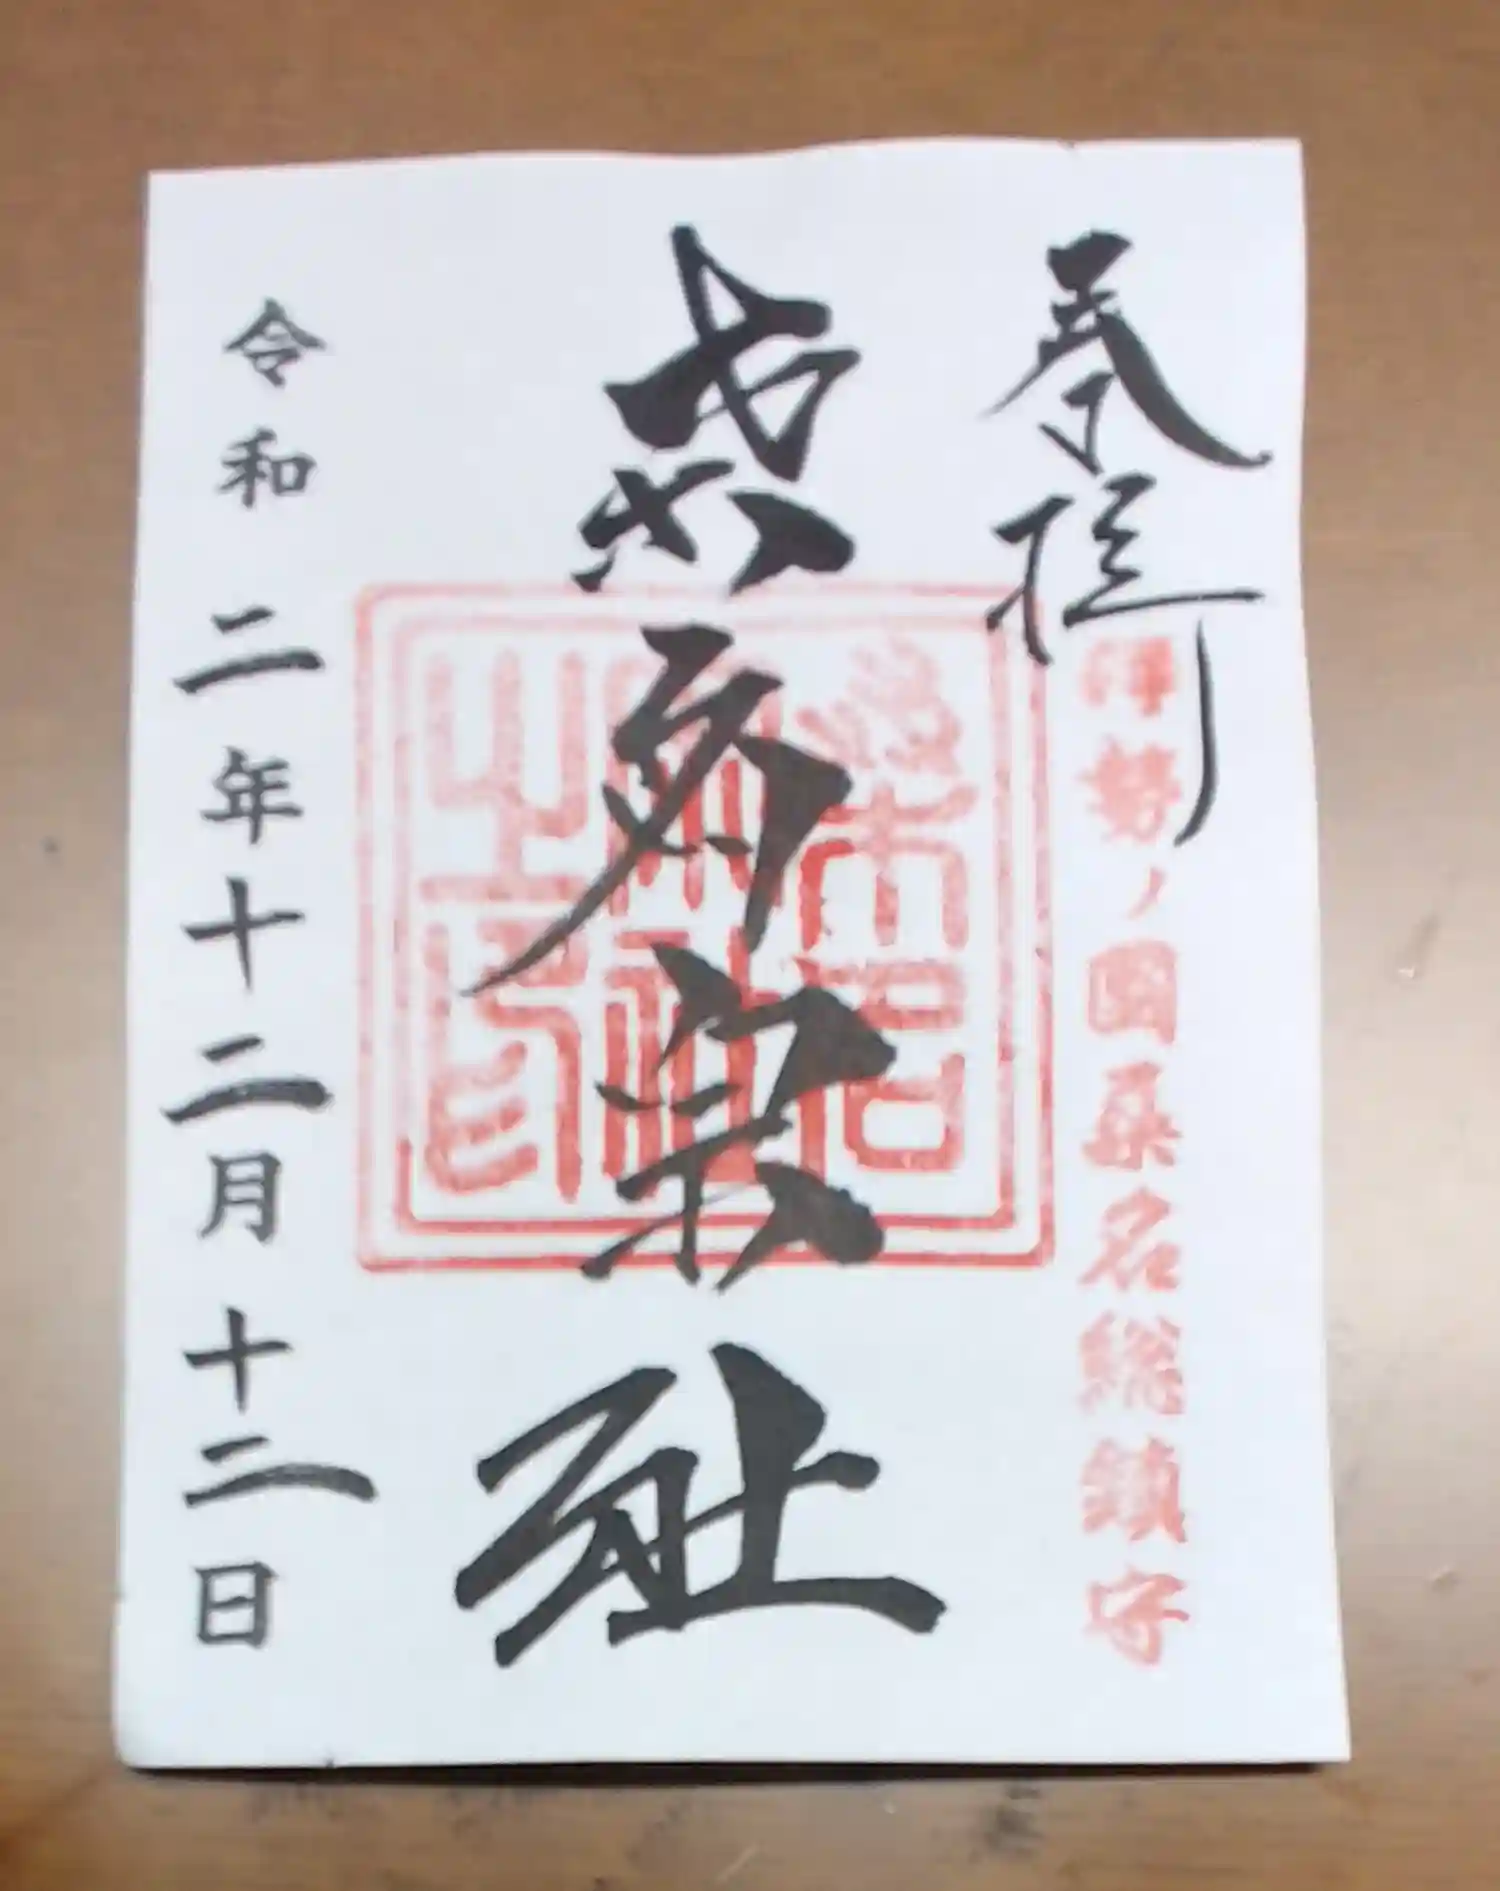 奉拝
伊勢ノ國桑名総鎮守
桑名宗社
桑名
宗社
之印
令和二年十二月十二日